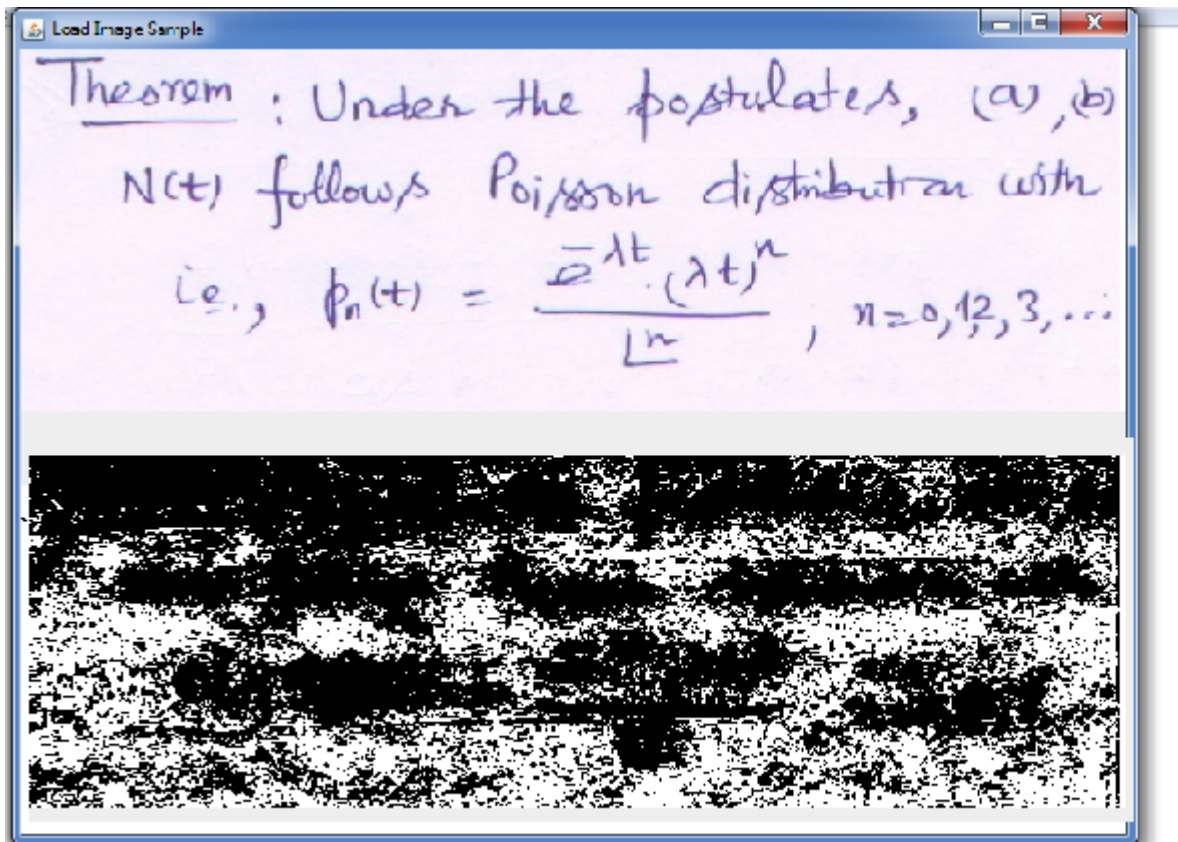 Load Image Sample
Theorem : Under the postulates, (a), (b)
N(t) follows Poisson distribution with
i.e., pₙ(t) = e̅^λt.(λt)^n / |n̲ , n=0,1,2,3,...